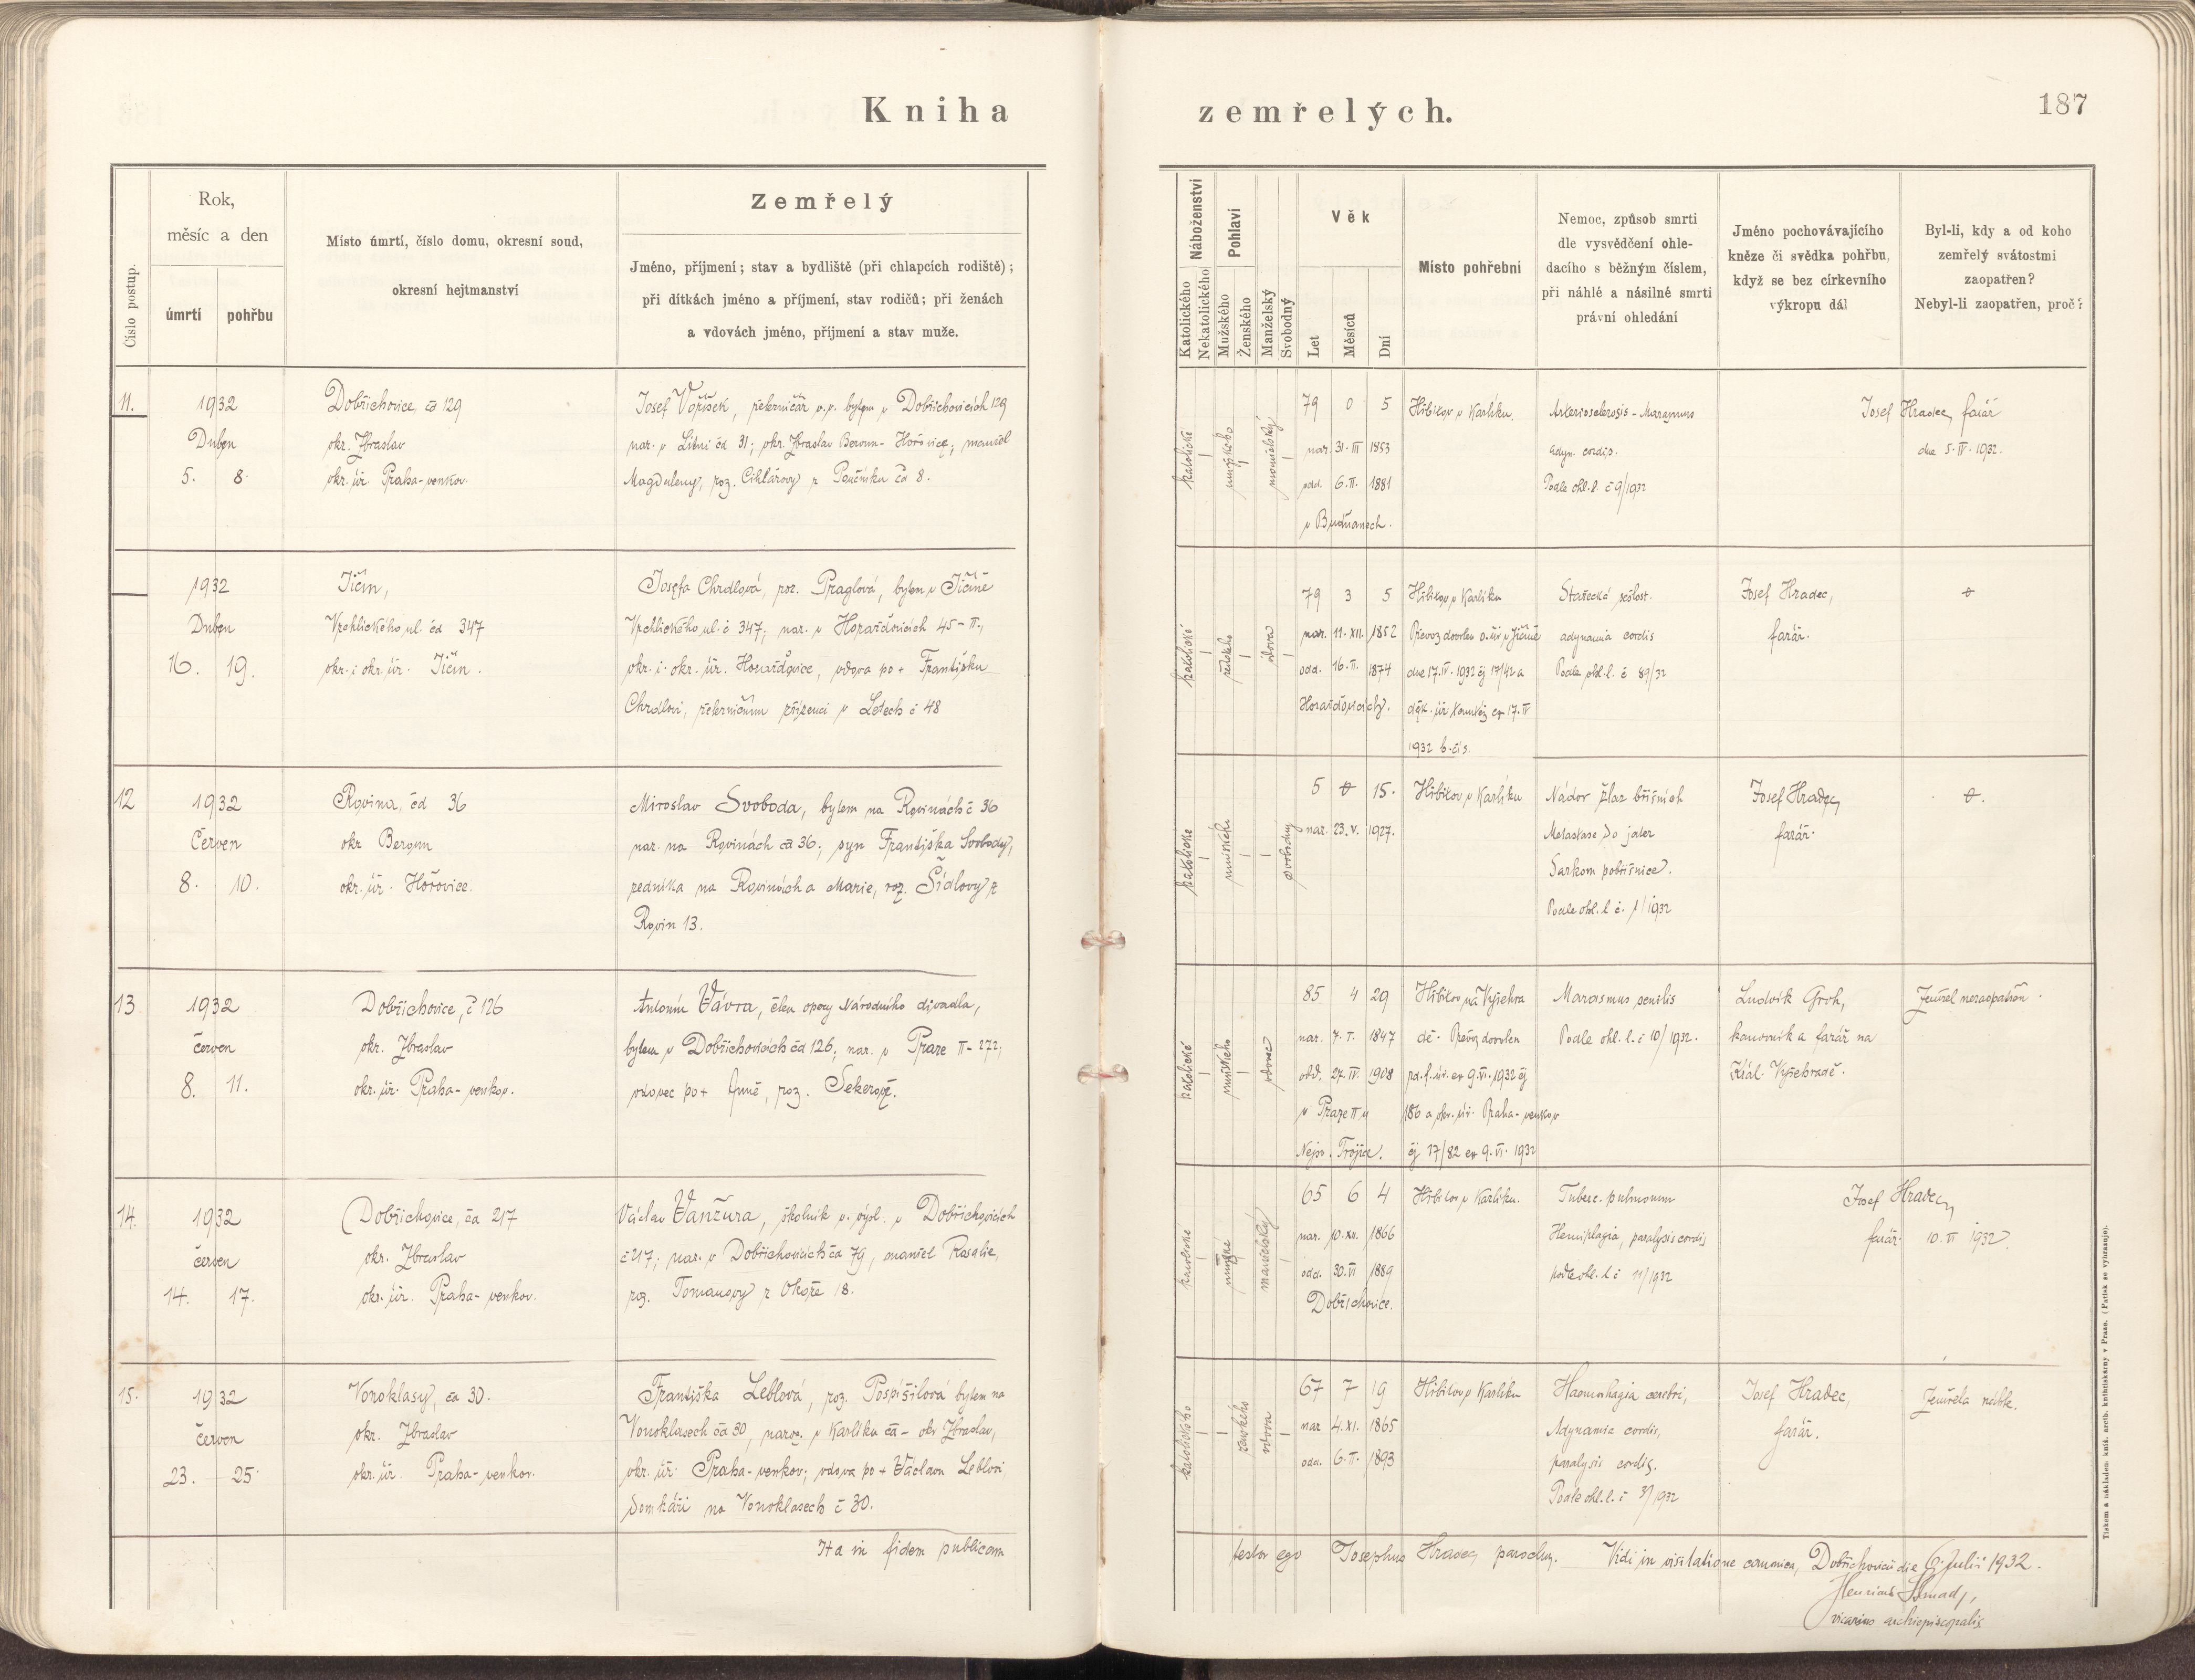 Kniha zemřelých.
187
Číslo postup.
Rok,
měsíc a den
úmrtí
pohřbu
Místo úmrtí, číslo domu, okresní soud,
okresní hejtmanství
Zemřelý
Jméno, příjmení; stav a bydliště (při chlapcích rodiště);
při dítkách jméno a příjmení, stav rodičů; při ženách
a vdovách jméno, příjmení a stav muže.
Náboženství
Katolického
Nekatolického
Pohlaví
Mužského
Ženského
Manželský
Svobodný
Věk
Let
Měsíců
Dní
Místo pohřební
Nemoc, způsob smrti
dle vysvědčení ohle-
dacího s běžným číslem,
při náhlé a násilné smrti
právní ohledání
Jméno pochovávajícího
kněze či svědka pohřbu,
když se bez církevního
výkropu dál
Byl-li, kdy a od koho
zemřelý svátostmi
zaopatřen?
Nebyl-li zaopatřen, proč?
11.
1932
Duben
5. 8.
Dobřichovice, čd 129
okr. Zbraslav
okr. úř. Praha-venkov.
Josef Vopršek, v.v. bytem v Dobřichovicích 129
nar. v Litni čd 31; okr. Zbraslav Beroun-Hořovice; manžel
Magdaleny, roz. Cihlářovy z čd 8.
katolické
mužského
manželský
79 0 5
nar. 31. III 1853
odd. 6. II. 1881
v Budňanech.
Hřbitov v Karlíku.
Arteriosclerosis - Marasmus
adyn. cordis.
Podle ohl. l. č 9/1932
Josef Hradec, farář
dne 5. IV. 1932.
1932
Duben
16. 19.
Jičín,
Vrchlického ul. čd 347
okr. i okr. úř. Jičín.
Josefa Chrdlová, roz. Praglová, bytem v Jičíně
Vrchlického ul. č 347; nar. v Horažďovicích 45-II.,
okr. i. okr. úř. Horažďovice, vdova po + Františku
Chrdlovi, zřízenci v Letech č 48
katolické
ženského
vdova
79 3 5
nar. 11. XII. 1852
odd. 16. II. 1874
Horažďovicích.
Hřbitov v Karlíku
Převoz dovolen o. úř. v Jičíně
dne 17. IV. 1932 čj 17/42 a
děk. úř. tamtéž ex 17. IV
1932 b. čís.
Stařecká sešlost.
adynamia cordis
Podle ohl. l. č 89/32
Josef Hradec,
farář.
12
1932
Červen
8. 10.
Rovina, čd 36
okr Beroun
okr. úř. Hořovice.
Miroslav Svoboda, bytem na Rovinách č 36
nar. na Rovinách čd 36; syn Františka Svobody,
zedníka na Rovinách a Marie, roz. Šídlovy z
Rovin 13.
katolické
mužského
svobodný
5 0 15.
nar. 23. V. 1927.
Hřbitov v Karlíku
Nádor žlaz břišních
Metastase do jater
Sarkom pobřišnice.
Podle ohl. l č. 1/1932
Josef Hradec,
farář.
13
1932
červen
8. 11.
Dobřichovice, č 126
okr. Zbraslav
okr. úř. Praha-venkov.
Antonín Vávra, člen opery Národního divadla,
bytem v Dobřichovicích čd 126; nar. v Praze II-272;
vdovec po + Anně, roz. Sekerové.
katolické
mužského
vdovec
85 4 29
nar. 7. I. 1847
odd. 27. IV 1908
v Praze II u
Nejsv. Trojice.
Hřbitov na Vyšehra
dě. Převoz dovolen
od f. úř. ex 9. VI. 1932 čj
186 a okr. úř. Praha-venkov
čj 17/82 ex 9. VI. 1932
Marasmus senilis
Podle ohl. l. č 10/1932.
Ludvík Groh,
kanovník a farář na
Král. Vyšehradě.
Zemřel nezaopatřen.
14.
1932
červen
14. 17.
Dobřichovice, čd 217
okr. Zbraslav
okr. úř. Praha-venkov.
Václav Vanžura, školník v. výsl. v Dobřichovicích
č 217; nar. v Dobřichovicích čd 79, manžel Rosalie,
roz. Tomanovy z Okoře 18.
manželský
65 6 4
nar. 10. XII. 1866
odd. 30. VI 1889
Dobřichovice.
Hřbitov v Karlíku.
Tuberc. pulmonum
Hemiplegia, paralysis cordis
podle ohl. l č 11/1932
Josef Hradec,
farář 10. VI 1932.
15.
1932
červen
23. 25.
Vonoklasy, čd 30.
okr. Zbraslav
okr. úř. Praha-venkov.
Františka Leblová, roz. Pospíšilová bytem na
Vonoklasech čd 30, naroz. v Karlíku čd - okr Zbraslav,
okr. úř. Praha-venkov; vdova po + Václavu Leblovi,
domkáři na Vonoklasech č 30.
katolického
ženského
vdova
67 7 19
nar 4. XI. 1865
odd. 6. II. 1893
Hřbitov v Karlíku
Haemorhagia cerebri,
Adynamia cordis,
paralysis cordis.
Podle ohl. l. č 3/1932
Josef Hradec,
farář.
Zemřela náhle.
Ita in fidem publicam testor ego Josephus Hradec parochus.
Vidi in visitatione canonica, Dobřichovicii die 6. Julii 1932.
vicarius archiepiscopalis
Tiskem a nákladem kníž. arcib. knihtiskárny v Praze. (Patisk se vyhrazuje).